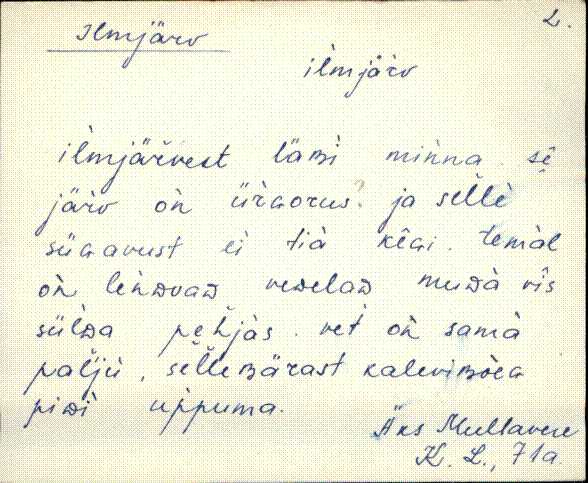 2.
Ilmjärv
ilmjärv
ilmjärvest läʙi minna. sē
järv on ürɢorus? ja selle
süɢavust ei tiä kēɢi. temäl
on leɴᴅvaᴅ veᴅelaᴅ muᴅà vīs
sülᴅa pehjàs. vet on samà
palju, sellemärast kaleviʙòeɢ
piᴅi uppuma.
Äks Mullavere
K. L., 71a.